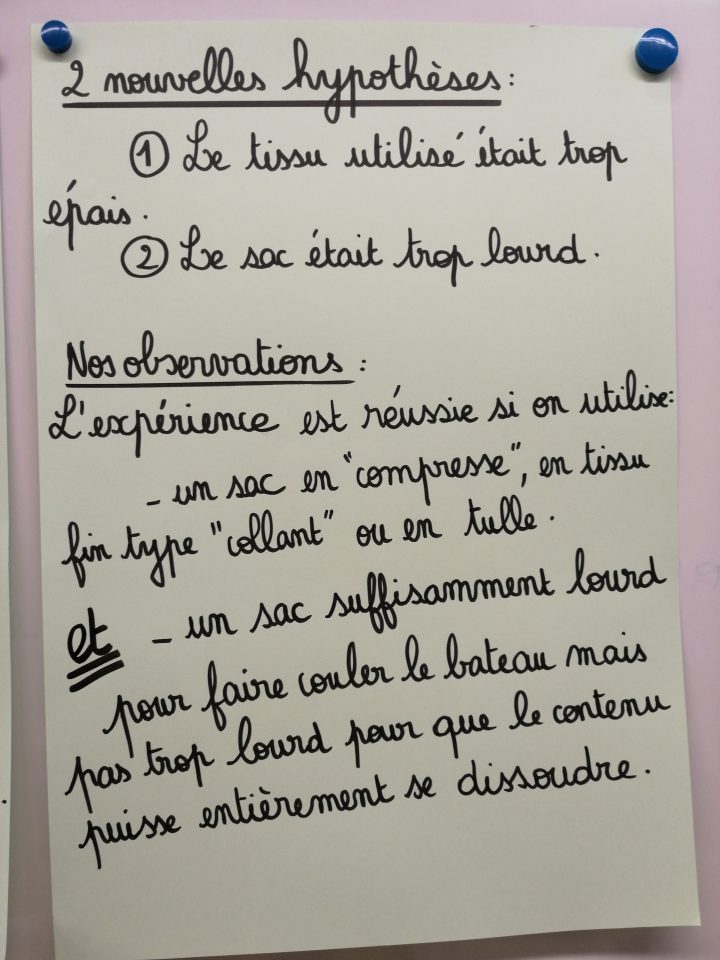 2 nouvelles hypothèses :
① Le tissu utilisé était trop
épais.
② Le sac était trop lourd.
Nos observations :
L'expérience est réussie si on utilise:
- un sac en "compresse", en tissu
fin type "collant" ou en tulle.
et - un sac suffisamment lourd
pour faire couler le bateau mais
pas trop lourd pour que le contenu
puisse entièrement se dissoudre.